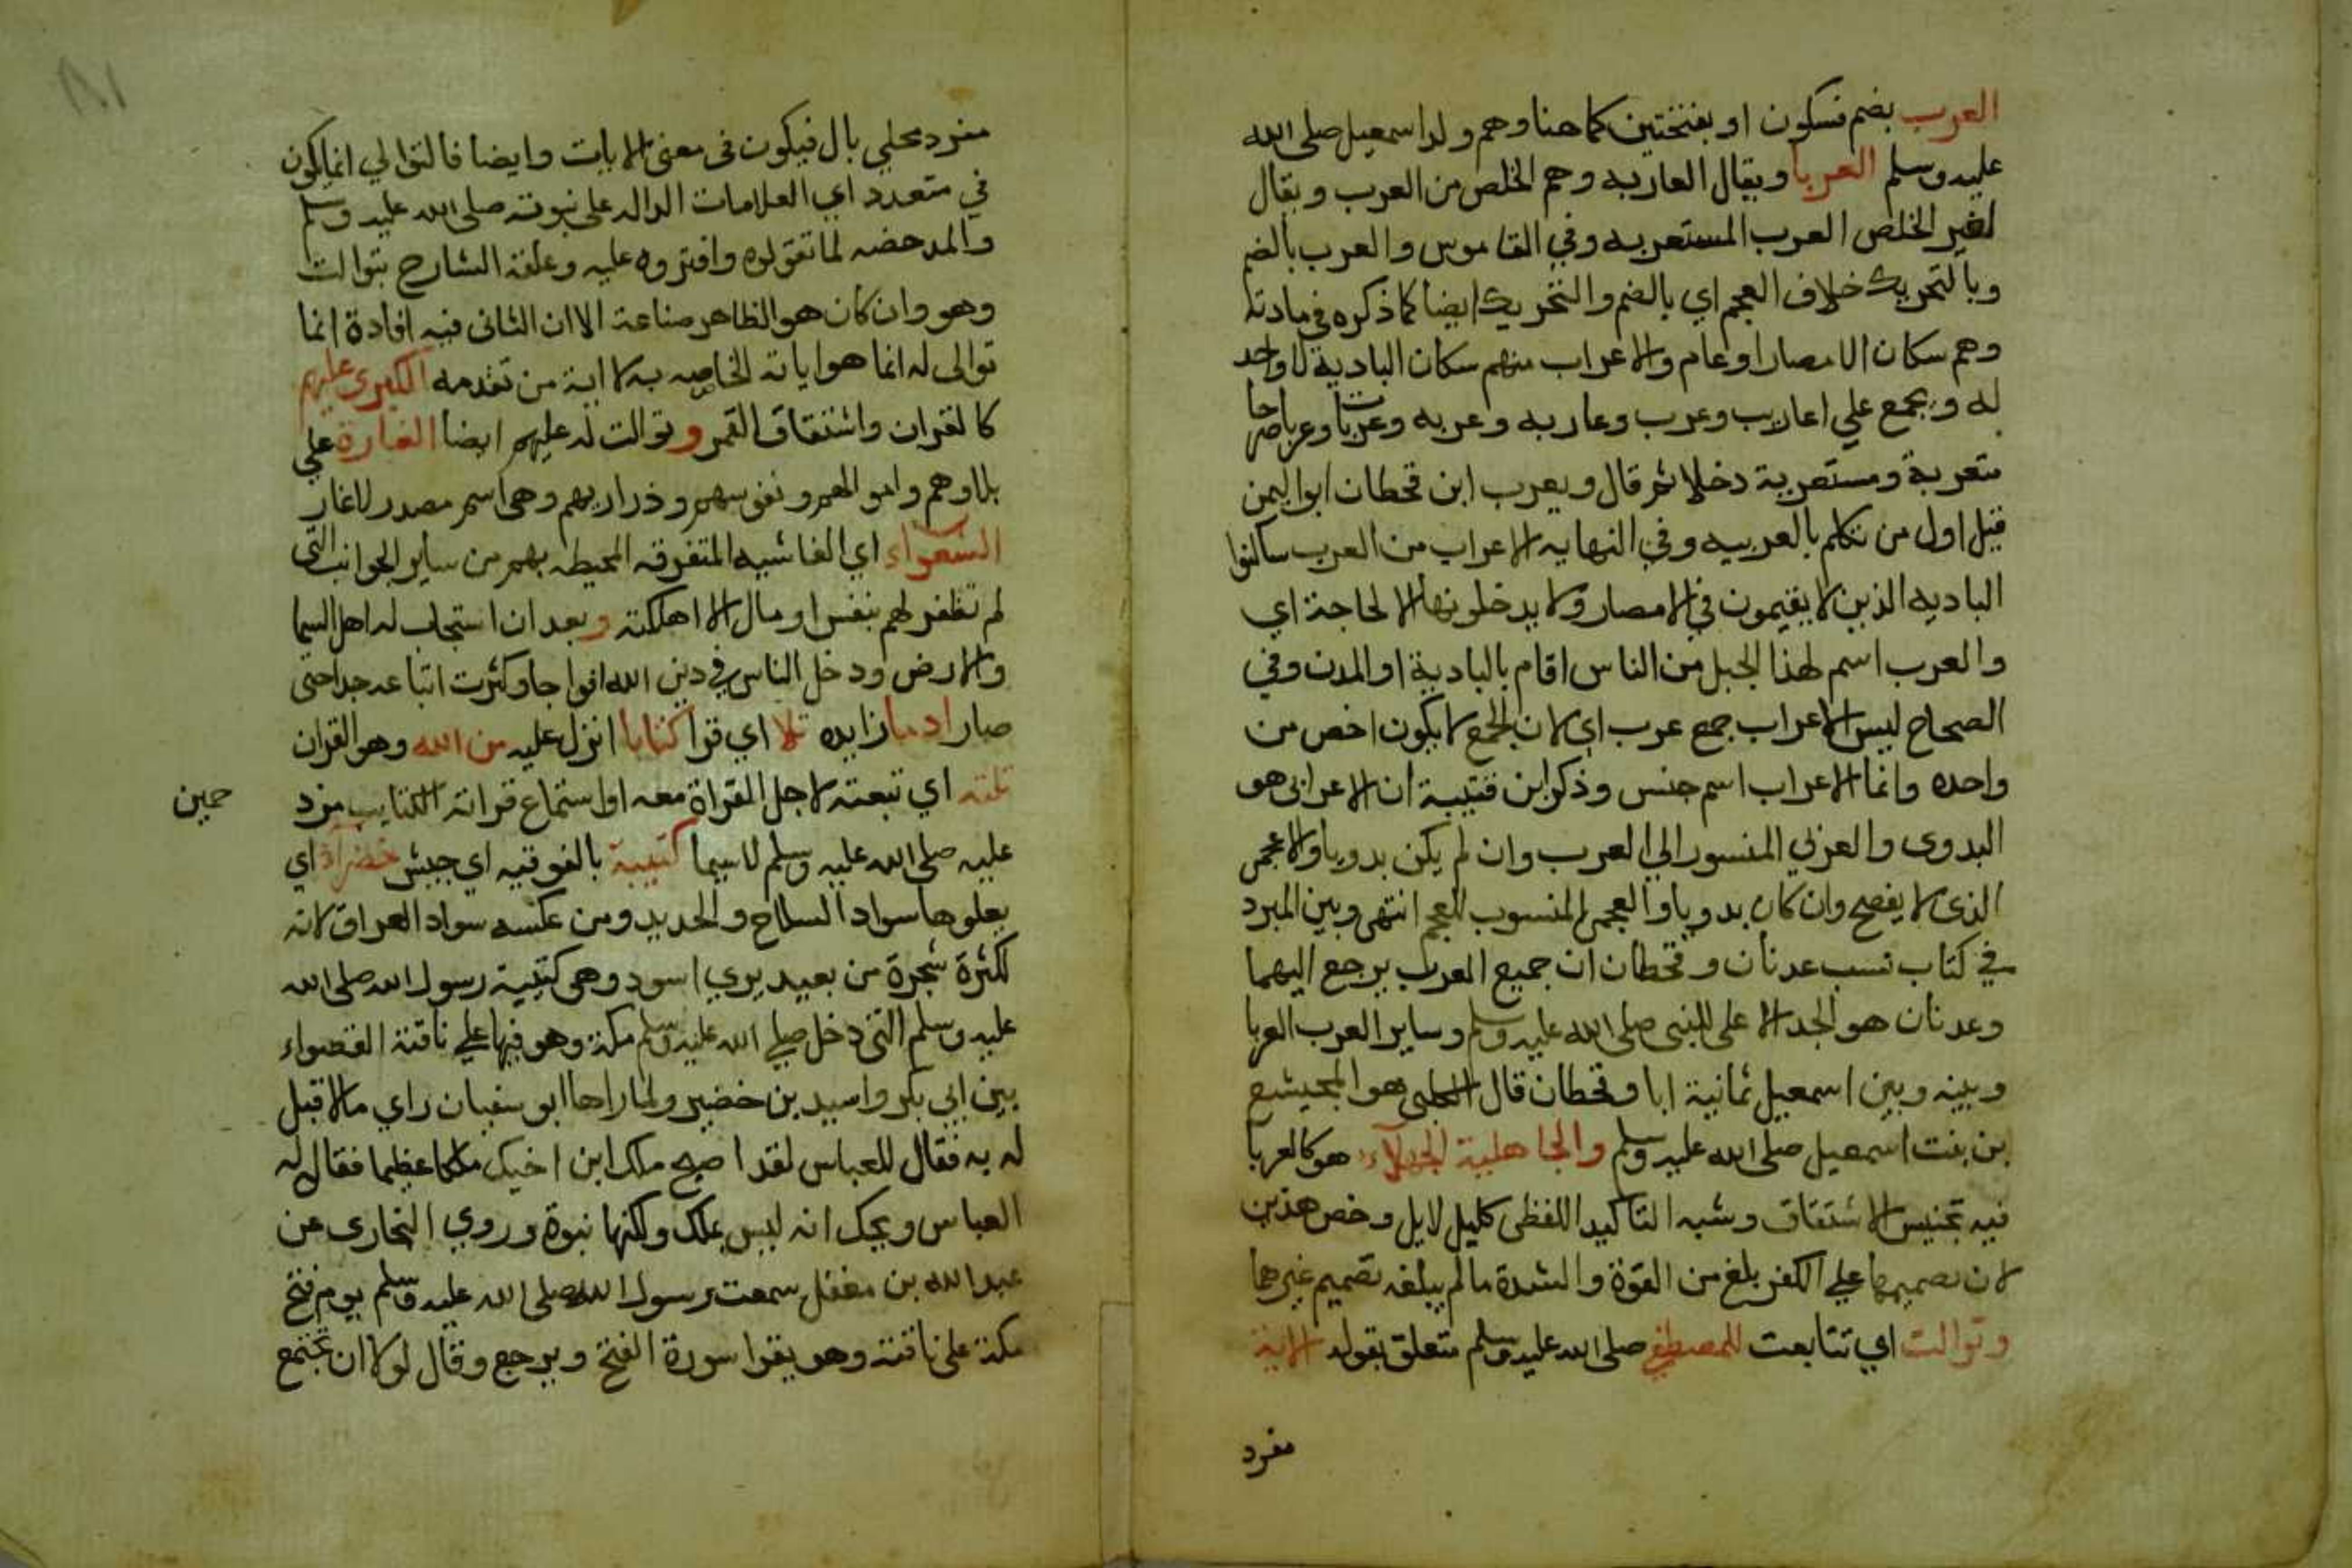 العرب بضم فسكون او بفتحتين كما هنا وهم ولد اسمعيل صلى الله
عليه وسلم العربا ويقال العاربه وهم الخلص من العرب ويقال
لغير الخلص العرب المستعربه وفي القاموس والعرب بالضم
وبالتحريك خلاف العجم اي بالضم والتحريك ايضا كما ذكره في مادته
وهم سكان الامصار او عام والاعراب منهم سكان البادية لا واحد
له ويجمع علي اعاريب وعرب وعاربه وعربه وعربات وعربا صرحا
متعربة ومستعربة دخلا ثم قال ويعرب ابن قحطان ابو اليمن
قيل اول من تكلم بالعربيه وفي النهايه الاعراب من العرب ساكنوا
الباديه الذين لا يقيمون في الامصار ولا يدخلونها الا لحاجة اي
والعرب اسم لهذا الجيل من الناس اقام بالبادية او المدن وفي
الصحاح ليس الاعراب جمع عرب اي لان الجمع لا يكون اخص من
واحده وانما الاعراب اسم جنس وذكر ابن قتيبة ان الاعرابى هو
البدوى والعربي المنسوب الي العرب وان لم يكن بدويا والاعجمي
الذى لا يفصح وان كان بدويا والعجمي المنسوب للعجم انتهى وبين المبرد
في كتاب نسب عدنان وقحطان ان جميع العرب يرجع اليهما
وعدنان هو الجد الاعلى للنبى صلى الله عليه وسلم وساير العرب العربا
وبينه وبين اسمعيل ثمانية ابا وقحطان قال الكلبى هو ابن
بن بنت اسمعيل صلى الله عليه وسلم والجاهلية الجهلاء هو كالعربا
فيه تجنيس الاشتقاق وشبه التاكيد اللفظى كليل لايل وخص هذين
لان تصميمهما علي الكفر بلغ من القوة والشدة ما لم يبلغه تصميم غيرهما
وتوالت اي تتابعت للمصطفي صلى الله عليه وسلم متعلق بقوله الاية
مفرد
مفرد محلي بال فيكون فى معنى الايات وايضا فالتوالي انما يكون
في متعدد اي العلامات الداله على نبوته صلى الله عليه وسلم
والمدحضه لما تقولوه وافتروه عليه وعلقه الشارح بتوالت
وهو وان كان هو الظاهر صناعة الا ان الثانى فيه افادة انما
توالى له انما هو اياته الخاصه به لا اية من تقدمه الكبرى عليهم
كالقران وانشقاق القمر وتوالت له عليهم ايضا الغارة علي
بلادهم واموالهم ونفوسهم وذراريهم وهى اسم مصدر لاغار
الشعواء اي الغاشيه المتفرقه المحيطه بهم من ساير الجوانب التى
لم تظفر لهم بنفس او مال الا اهلكته وبعد ان استجاب له اهل السما
والارض ودخل الناس في دين الله افواجا وكثرت اتباعه جدا حتى
صار اذ ما زايده تلا اي قرا كتابا انزل عليه من الله وهو القران
تلته اي تبعته لاجل القراة معه او استماع قراته الكتايب مزد حمين
عليه صلى الله عليه وسلم لاسيما كتيبة بالفوقيه اي جيش خضراء اي
يعلوها سواد السلاح والحديد ومن عكسه سواد العراق لانه
لكثرة شجرة من بعيد يري اسود وهى كتيبة رسول الله صلى الله
عليه وسلم التى دخل صلي الله عليه وسلم مكة وهو فيها علي ناقته القصواء
بين ابي بكر واسيد بن خضير ولما راها ابو سفيان راي ما لا قبل
له به فقال للعباس لقد اصبح ملك ابن اخيك ملكا عظيما فقال له
العباس ويحك انه ليس بملك ولكنها نبوة وروي البخارى عن
عبد الله بن مغفل سمعت رسول الله صلى الله عليه وسلم يوم فتح
مكة على ناقته وهو يقرا سورة الفتح ويرجع وقال لولا ان تجتمع